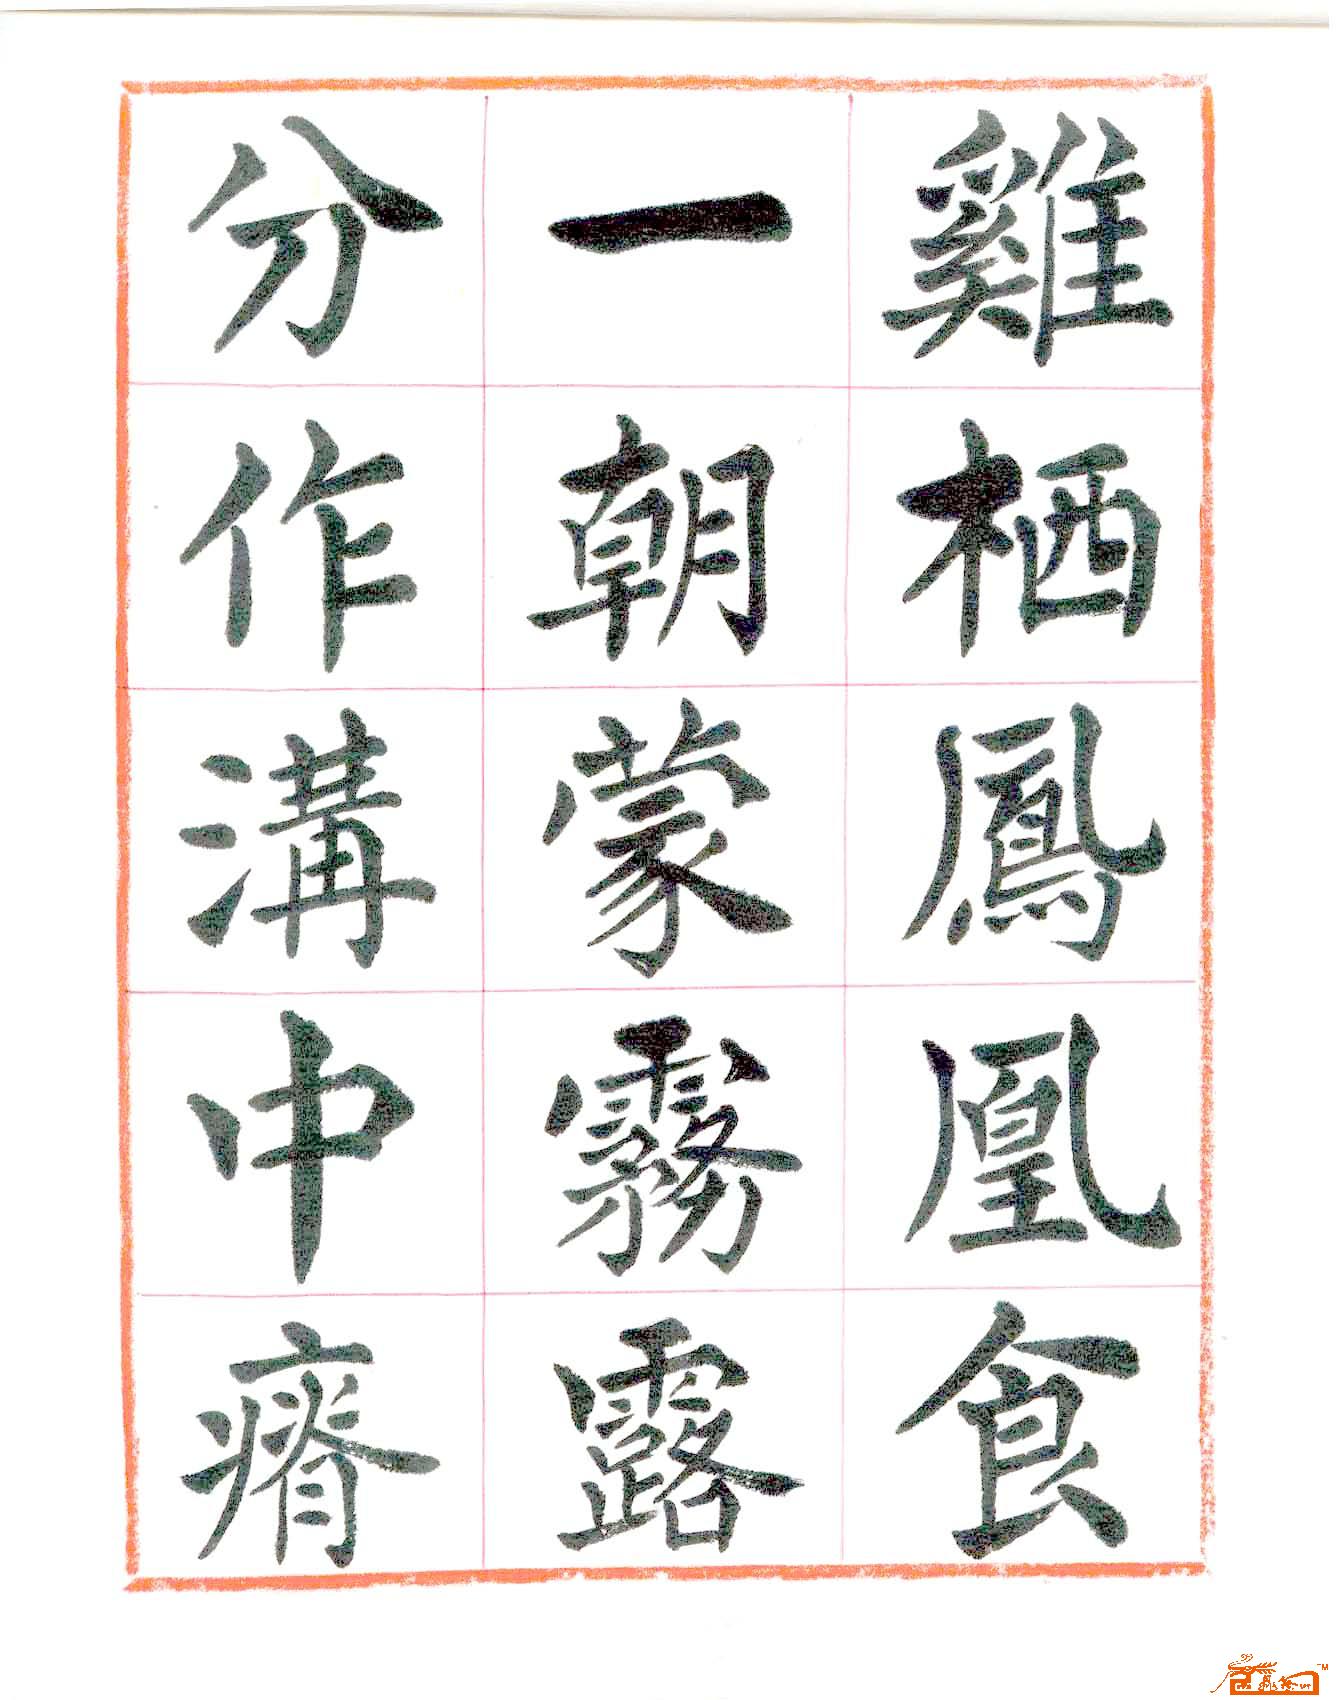 雞栖鳳凰食
一朝蒙霧露
分作溝中瘠